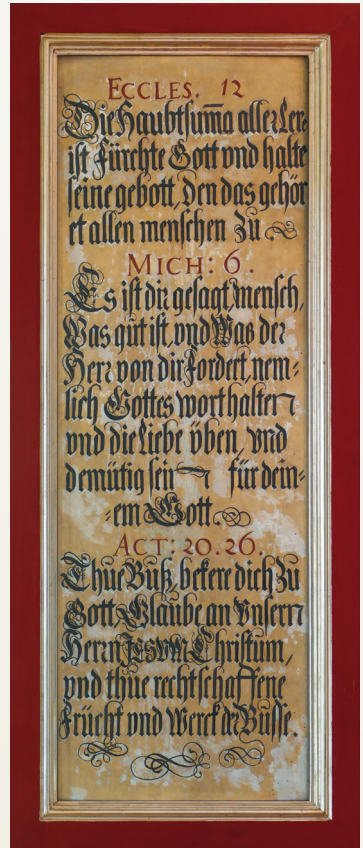 ECCLES. 12
Die Haubtsum̄a aller Lere
ist Fürchte Gott vnd halte
seine gebott, den das gehör
et allen menschen zu.
MICH: 6.
Es ist dir gesagt mensch,
Was gut ist, vnd Was der
Herr von dir fordert, nem-
lich Gottes wort halten
vnd die Liebe üben, vnd
demütig sein für dein-
-em Gott.
ACT: 20. 26.
Thue Buß, bekere dich zu
Gott, Glaube an Vnsern
Herrn JESVM Christum,
vnd thue rechtschaffene
Frücht vnd Werck der Busse.